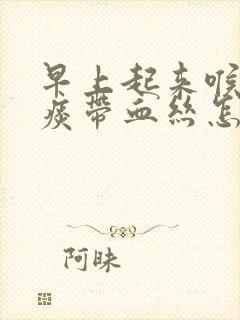 早上起来喉
痰带血丝怎
阿昧